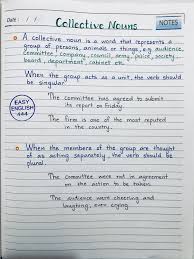 Date : / /
Collective Nouns
NOTES
A collective noun is a word that represents a
group of persons, animals or things, e.g. audience,
committee, company, council, army, police, society,
board, department, cabinet etc.
When the group acts as a unit, the verb should
be singular
The committee has agreed to submit
its report on friday.
EASY
ENGLISH
444
The firm is one of the most reputed
in the country.
When the members of the group are thought
of as acting separately, the verb should be
plural.
The committee were not in agreement
on the action to be taken.
The audience were cheering and
laughing, even crying